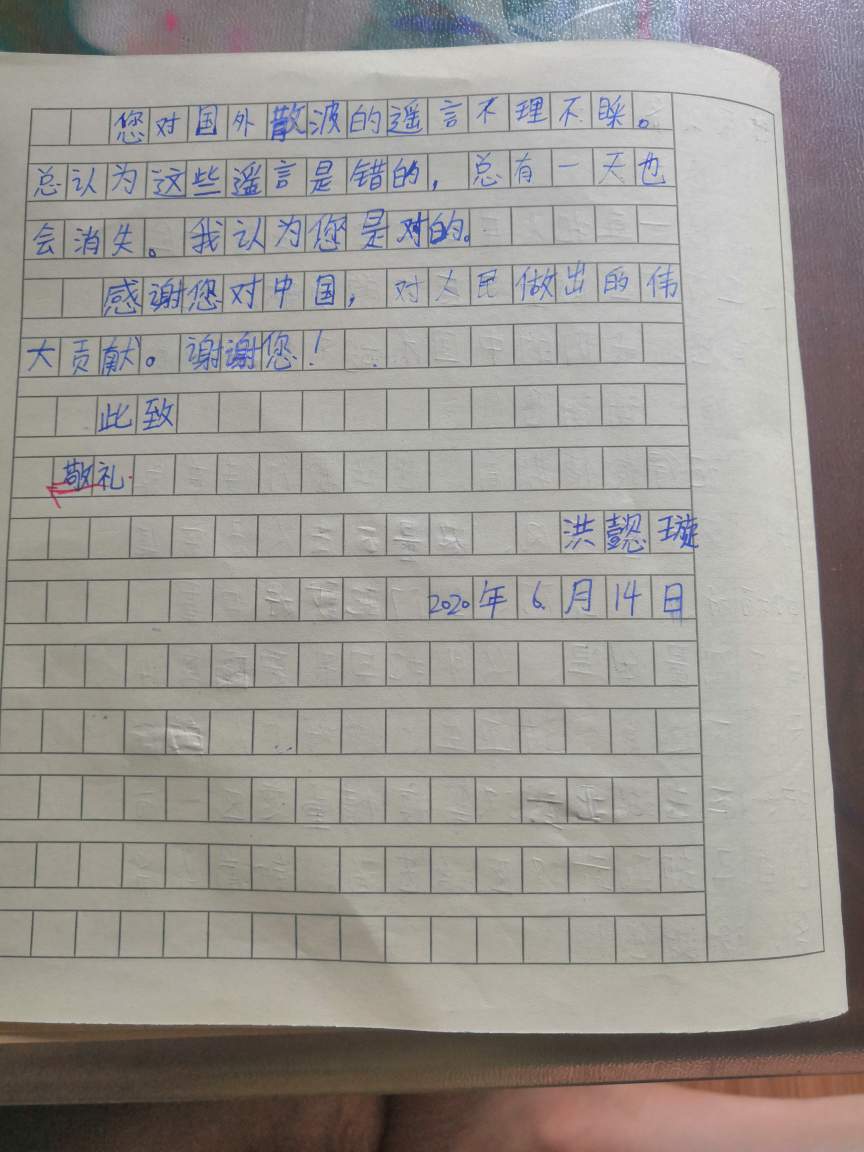 您对国外散波的遥言不理不睬。
总认为这些遥言是错的，总有一天也
会消失。我认为您是对的。
感谢您对中国，对人民做出的伟
大贡献。谢谢您！
此致
敬礼
洪懿璇
2020年6月14日